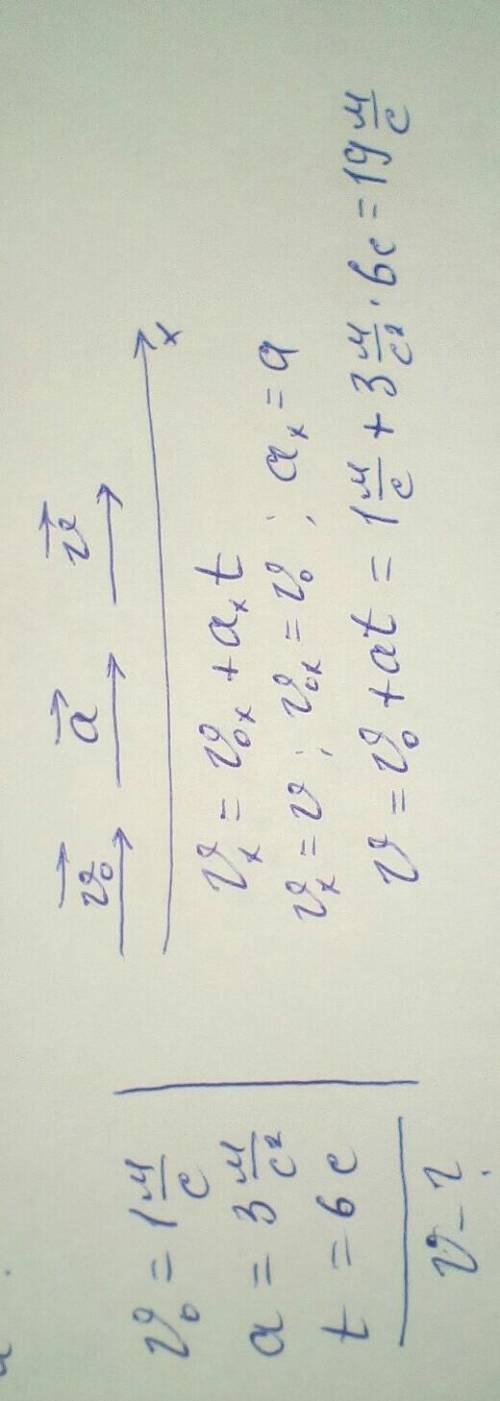 v₀ = 1 м/с
a = 3 м/с²
t = 6 с
v - ?
v⃗₀ a⃗ v⃗
x
vₓ = v₀ₓ + aₓt
vₓ = v ; v₀ₓ = v₀ ; aₓ = a
v = v₀ + at = 1 м/с + 3 м/с² · 6с = 19 м/с